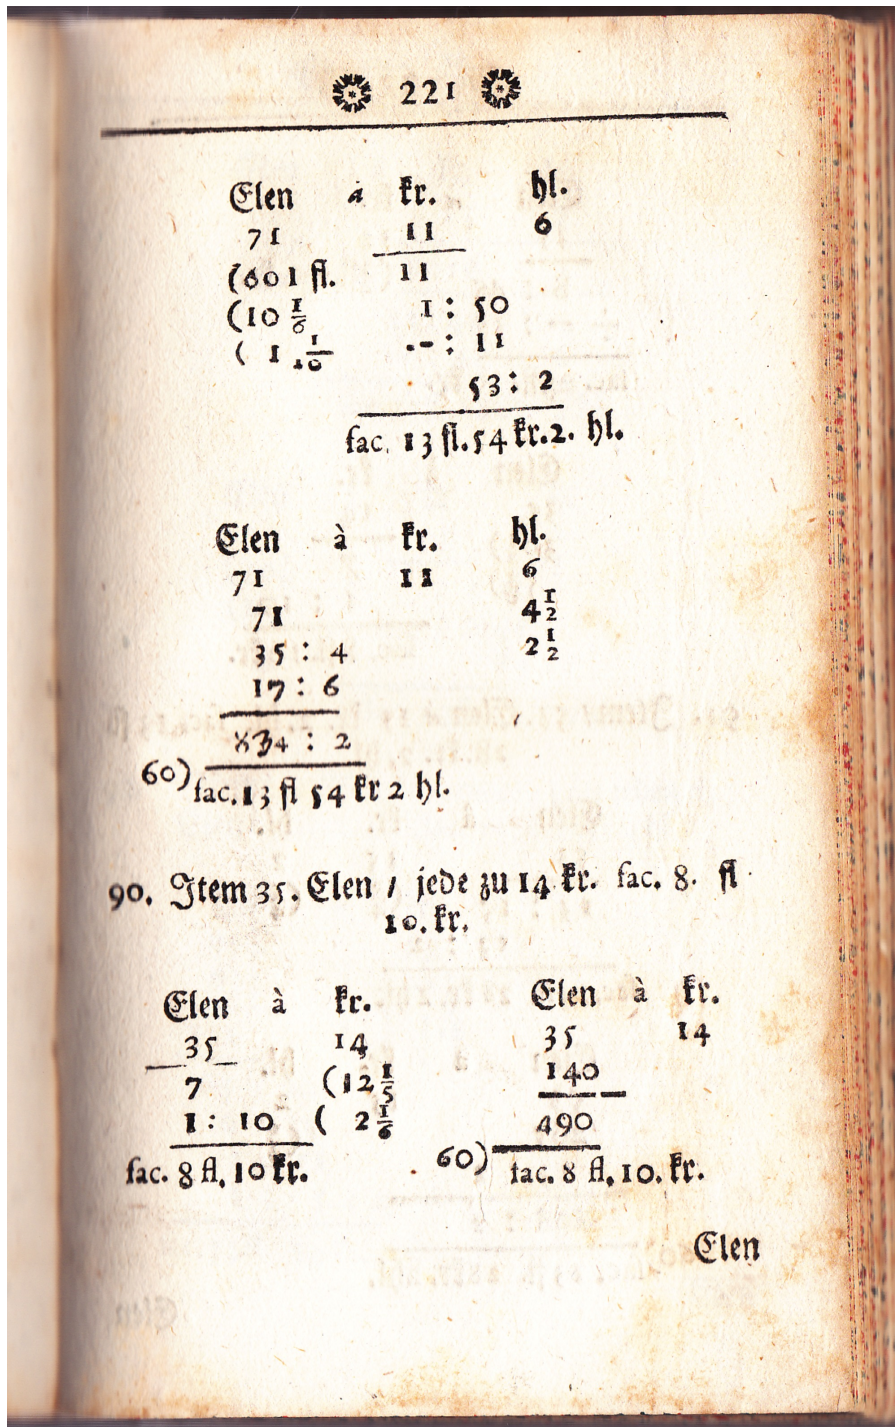 221
Elen à kr. hl.
71 11 6
(60 1 fl. 11
(10 1/6 1 : 50
( 1 1/10 .-: 11
53 : 2
fac. 13 fl. 54 kr. 2. hl.
Elen à kr. hl.
71 11 6
71 4 1/2
35 : 4 2 1/2
17 : 6
834 : 2
60) fac. 13 fl 54 kr 2 hl.
90. Item 35. Elen / jede zu 14 kr. fac. 8. fl
10. kr.
Elen à kr. Elen à kr.
35 14 35 14
7 (12 1/5 140
1 : 10 ( 2 1/6 490
fac. 8 fl. 10 kr. 60) fac. 8 fl. 10. kr.
Elen